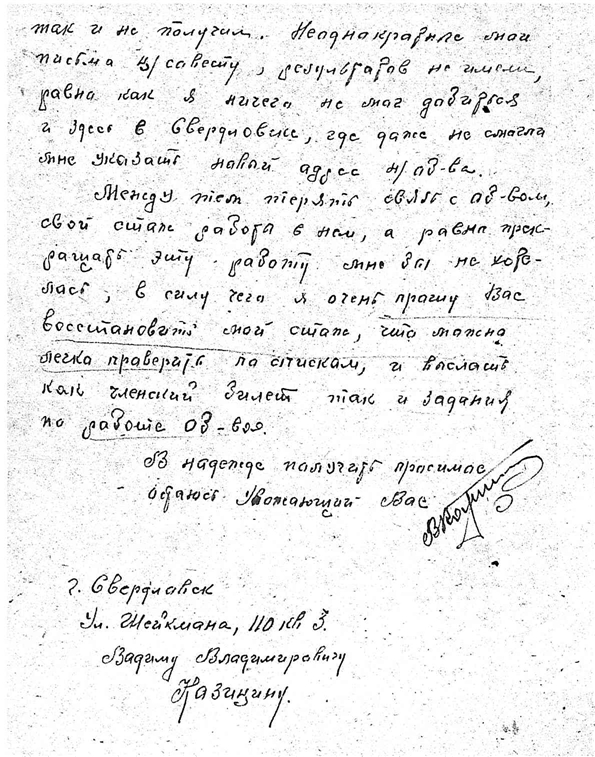 так и не получил. Неоднократные мои
письма ц/совету, результатов не имели,
равно как я ничего не мог добиться
и здесь в Свердловске, где даже не смогли
мне указать новый адрес н/об-ва.
Между тем терять связь с об-вом,
свой стаж работа в нем, а равно прек-
ращать эту работу мне бы не хоте-
лось, в силу чего я очень прошу Вас
восстановить мой стаж, что можно
легко проверить по спискам, и выслать
как членский билет так и задания
по работе об-воя.
В надежде получить просимое
остаюсь уважающий Вас
г. Свердловск
Ул. Шейкмана, 110 кв 3.
Вадиму Владимировичу